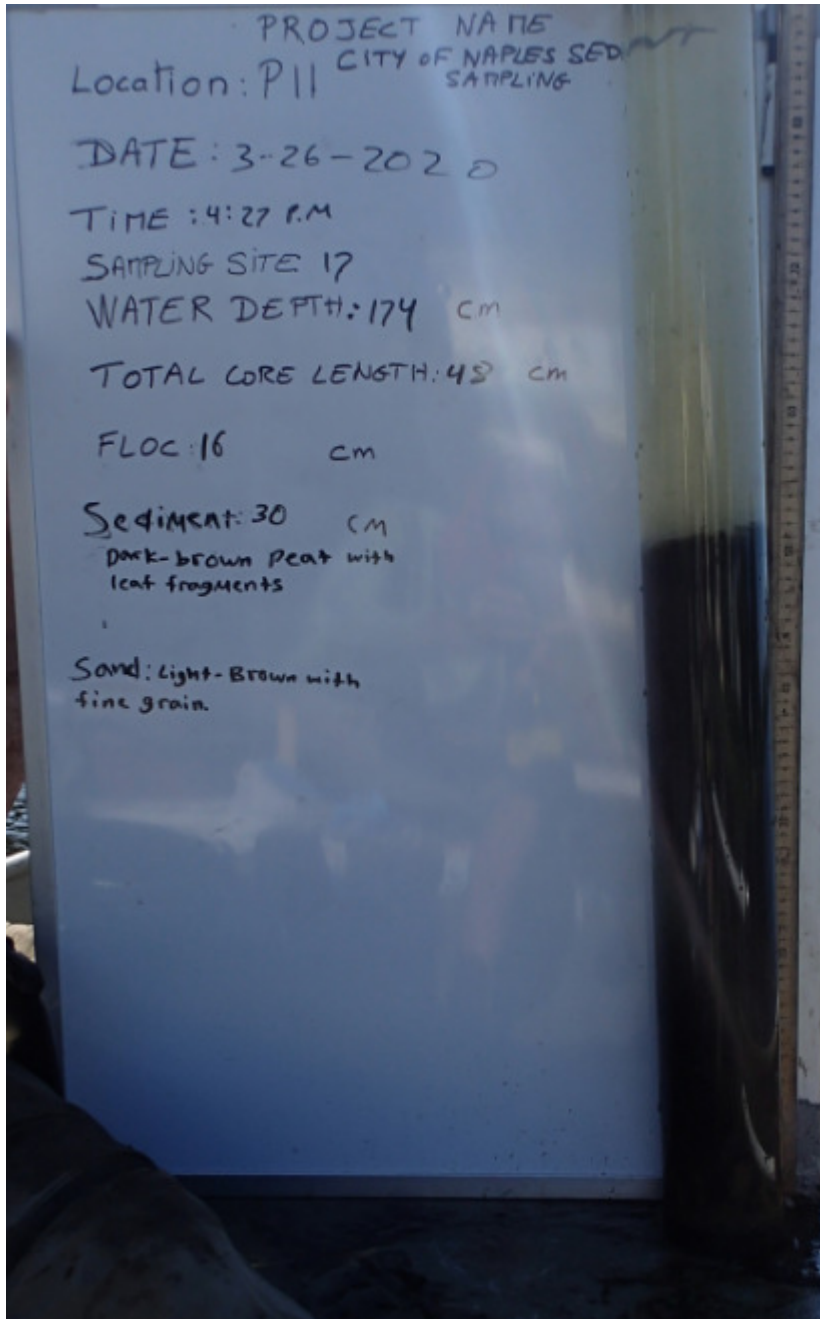 PROJECT NAME
CITY OF NAPLES SEDIMENT
SAMPLING
Location: P11
DATE: 3-26-2020
TIME: 4:27 P.M
SAMPLING SITE 17
WATER DEPTH: 174 cm
TOTAL CORE LENGTH: 48 cm
FLOC: 16 cm
Sediment: 30 CM
Dark-brown Peat with
leaf fragments
Sand: Light-Brown with
fine grain.